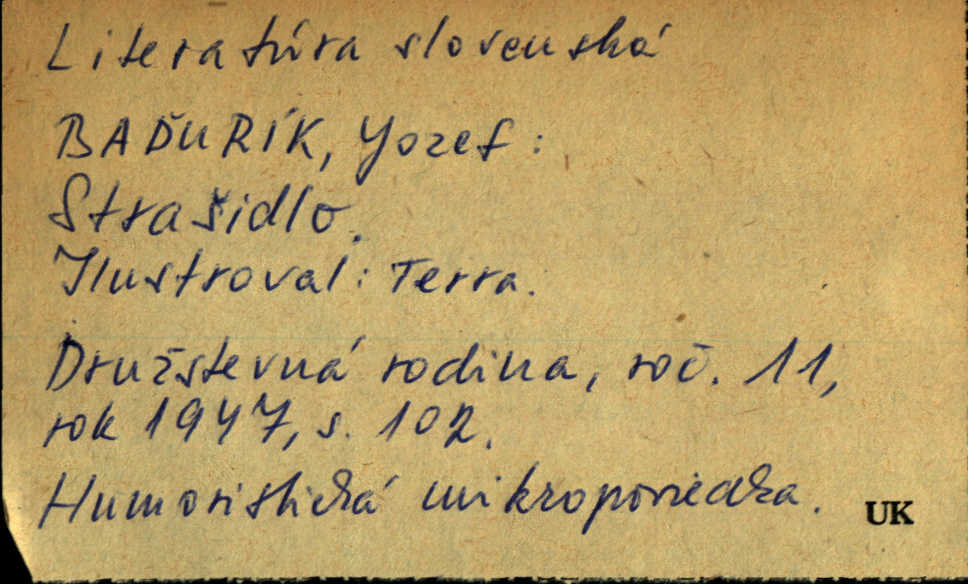 Literatúra slovenská
BAĎURÍK, Jozef:
Strašidlo.
Ilustroval: Terra.
Družstevná rodina, roč. 11,
rok 1947, s. 102.
Humoristická mikropoviedka.
UK